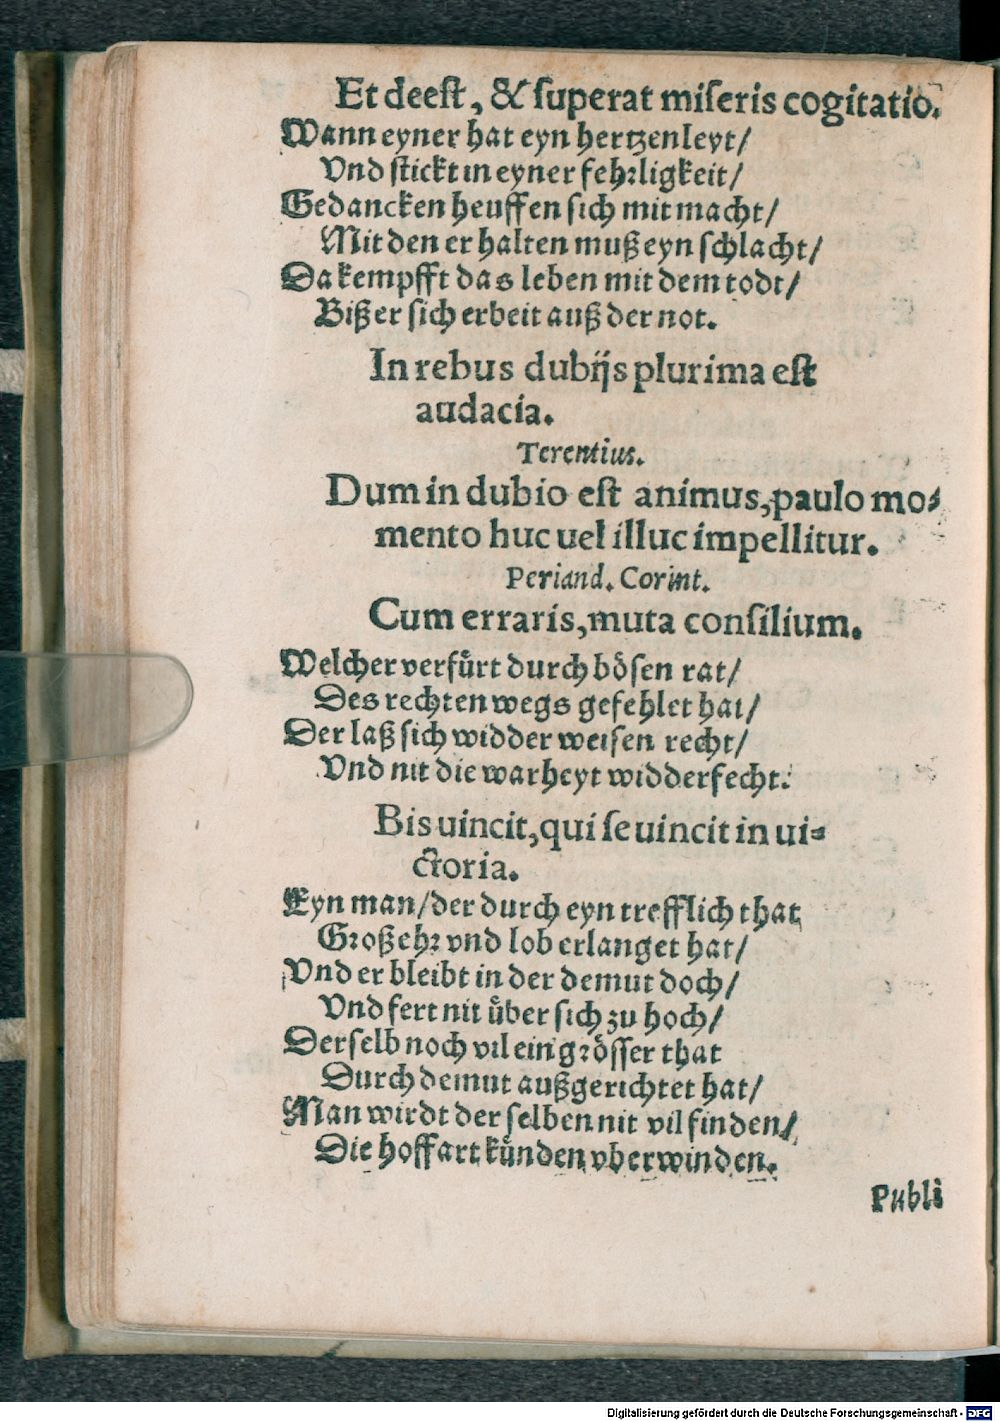 Et deest, & ſuperat miſeris cogitatio.
Wann eyner hat eyn hertzenleyt/
Vnd stickt in eyner fehꝛligkeit/
Gedancken heuffen sich mit macht/
Mit den er halten muß eyn schlacht/
Da kempfft das leben mit dem todt/
Biß er sich erbeit auß der not.
In rebus dubijs plurima est
audacia.
Terentius.
Dum in dubio est animus, paulo mo⸗
mento huc uel illuc impellitur.
Periand. Corint.
Cum erraris, muta conſilium.
Welcher verfuͤrt durch boͤsen rat/
Des rechten wegs gefehlet hat/
Der laß sich widder weisen recht/
Vnd nit die warheyt widderfecht.
Bis uincit, qui ſe uincit in ui⸗
ctoria.
Eyn man/der durch eyn trefflich that
Gꝛoß ehꝛ vnd lob erlanget hat/
Vnd er bleibt in der demut doch/
Vnd fert nit uͤber sich zu hoch/
Derselb noch vil ein gꝛoͤsser that
Durch demut außgerichtet hat/
Man wirdt der selben nit vil finden/
Die hoffart kuͤnden vberwinden.
Publi
Digitalisierung gefördert durch die Deutsche Forschungsgemeinschaft - DFG